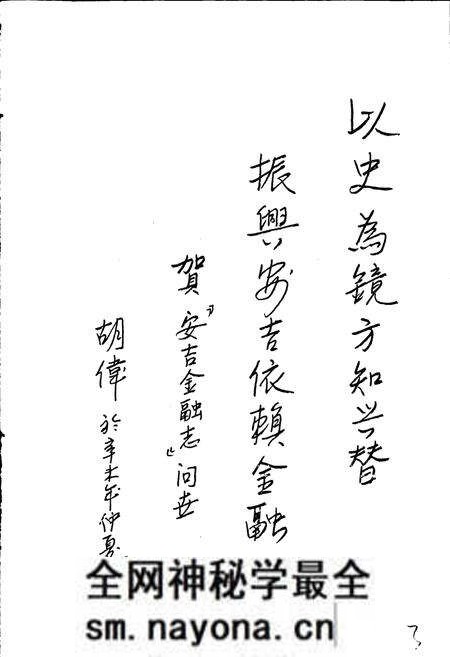 以史為鏡方知兴替
振興安吉依賴金融
賀《安吉金融志》问世
胡偉 於辛未年仲夏
全网神秘学最全
sm.nayona.cn